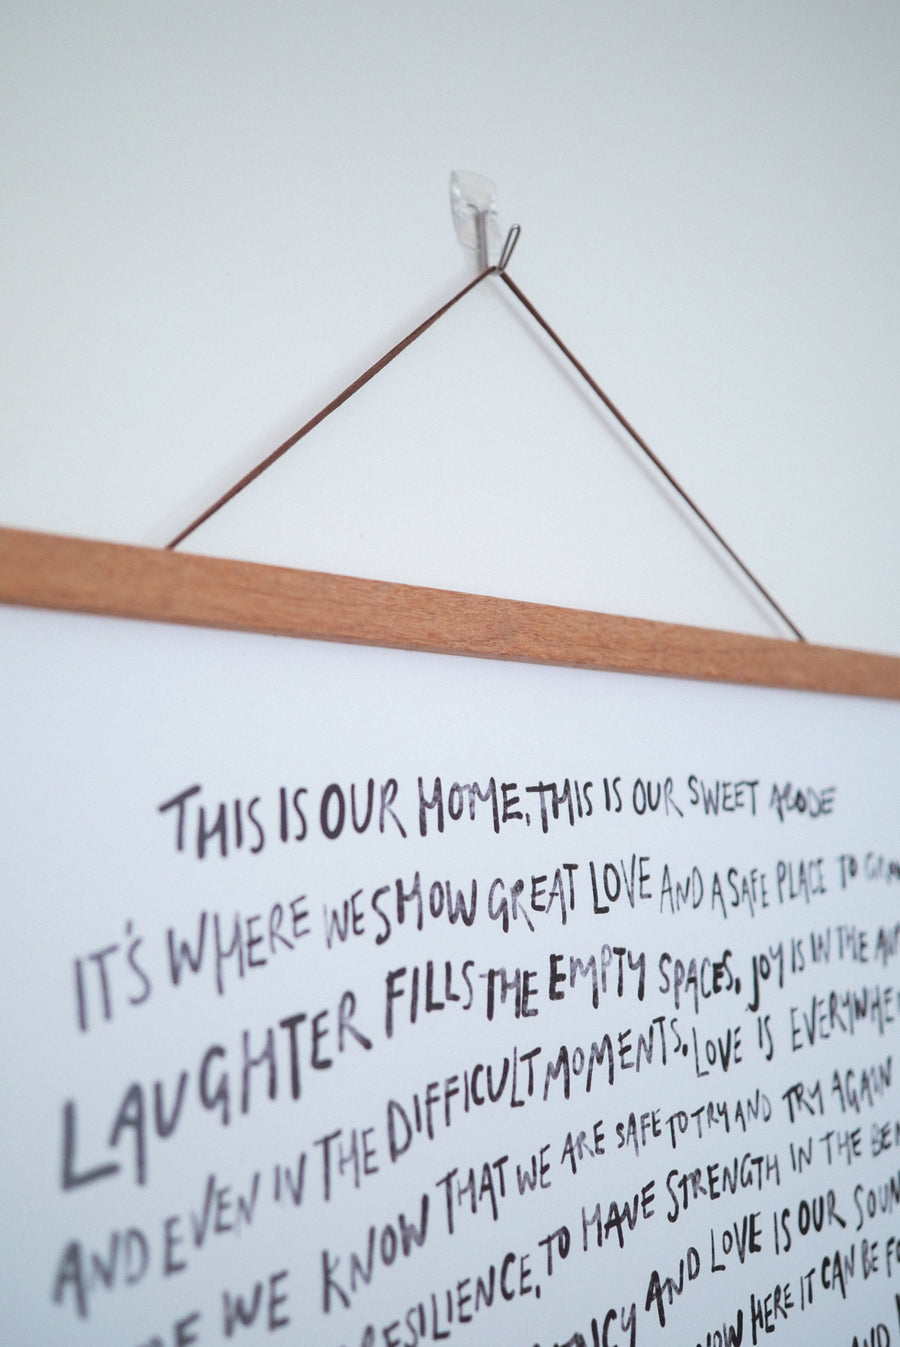 THIS IS OUR HOME, THIS IS OUR SWEET ABODE
IT'S WHERE WE SHOW GREAT LOVE AND A SAFE PLACE TO
LAUGHTER FILLS THE EMPTY SPACES. JOY IS IN THE
AND EVEN IN THE DIFFICULT MOMENTS. LOVE IS
WE KNOW THAT WE ARE SAFE TO TRY AND TRY AGAIN
RESILIENCE, TO HAVE STRENGTH IN THE
AND LOVE IS OUR
HERE IT CAN BE
AND